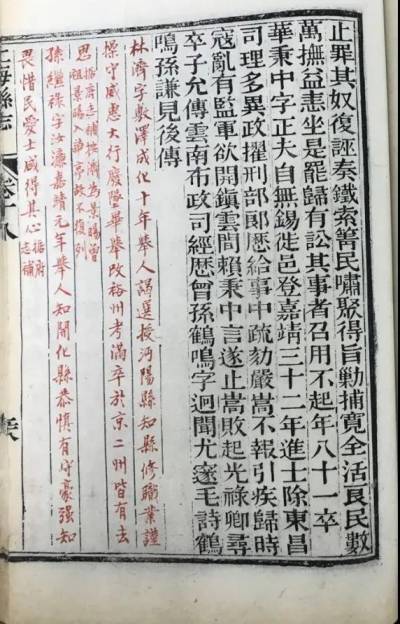 止罪其奴復誣奏鐵索箐民嘯聚得旨勦捕寬全活良民數
萬撫益恚坐是罷歸有訟其事者召用不起年八十一卒
華秉中字正夫自無錫徙邑登嘉靖三十二年進士除東昌
司理多異政擢刑部郎歷給事中疏劾嚴嵩不報引疾歸時
寇亂有監軍欲開鎮雲間賴秉中言遂止嵩敗起光祿卿尋
卒子允傳雲南布政司經歷曾孫鶴鳴字迥聞尤邃毛詩鶴
鳴孫謙見後傳
林濟字敷澤成化十年舉人謁選授沔陽縣知縣修職業謹
操守威惠大行廢墜畢舉改裕州考滿卒於京二州皆有去
思據府志補按濟為景暘曾
祖景暘入故不復列
孫繼祿字汝濂嘉靖元年舉人知開化縣恭慎有守豪強知
畏惜民愛士咸得其心據府志補
上海縣志 卷十八